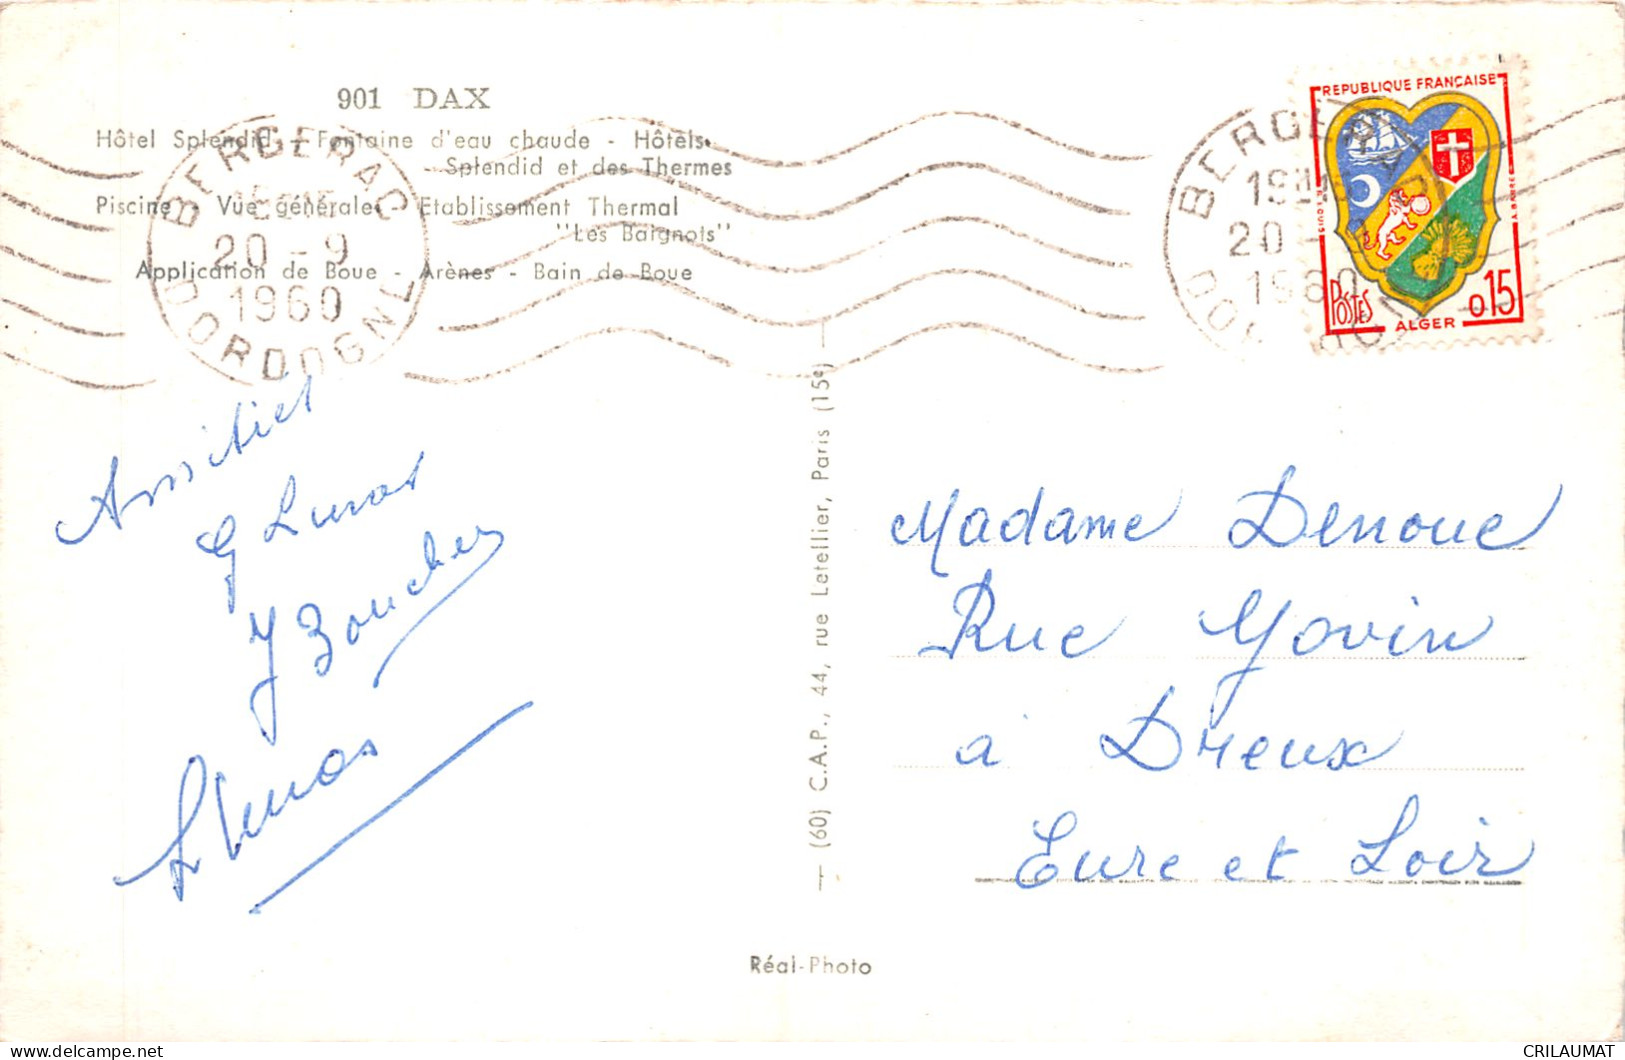 901 DAX
Hôtel Splendid - Fontaine d'eau chaude - Hôtels
Splendid et des Thermes
Piscine - Vue générale - Etablissement Thermal
"Les Baignots"
Application de Boue - Arènes - Bain de Boue
BERGERAC
20 - 9
1960
DORDOGNE
BERGERAC
20
1960
REPUBLIQUE FRANÇAISE
POSTES
ALGER
0,15
Amitiés
G
J Boucher
(60) C.A.P., 44, rue Letellier, Paris (15e)
Madame Denoue
Rue
à Dreux
Eure et Loir
Réal-Photo
CRILAUMAT